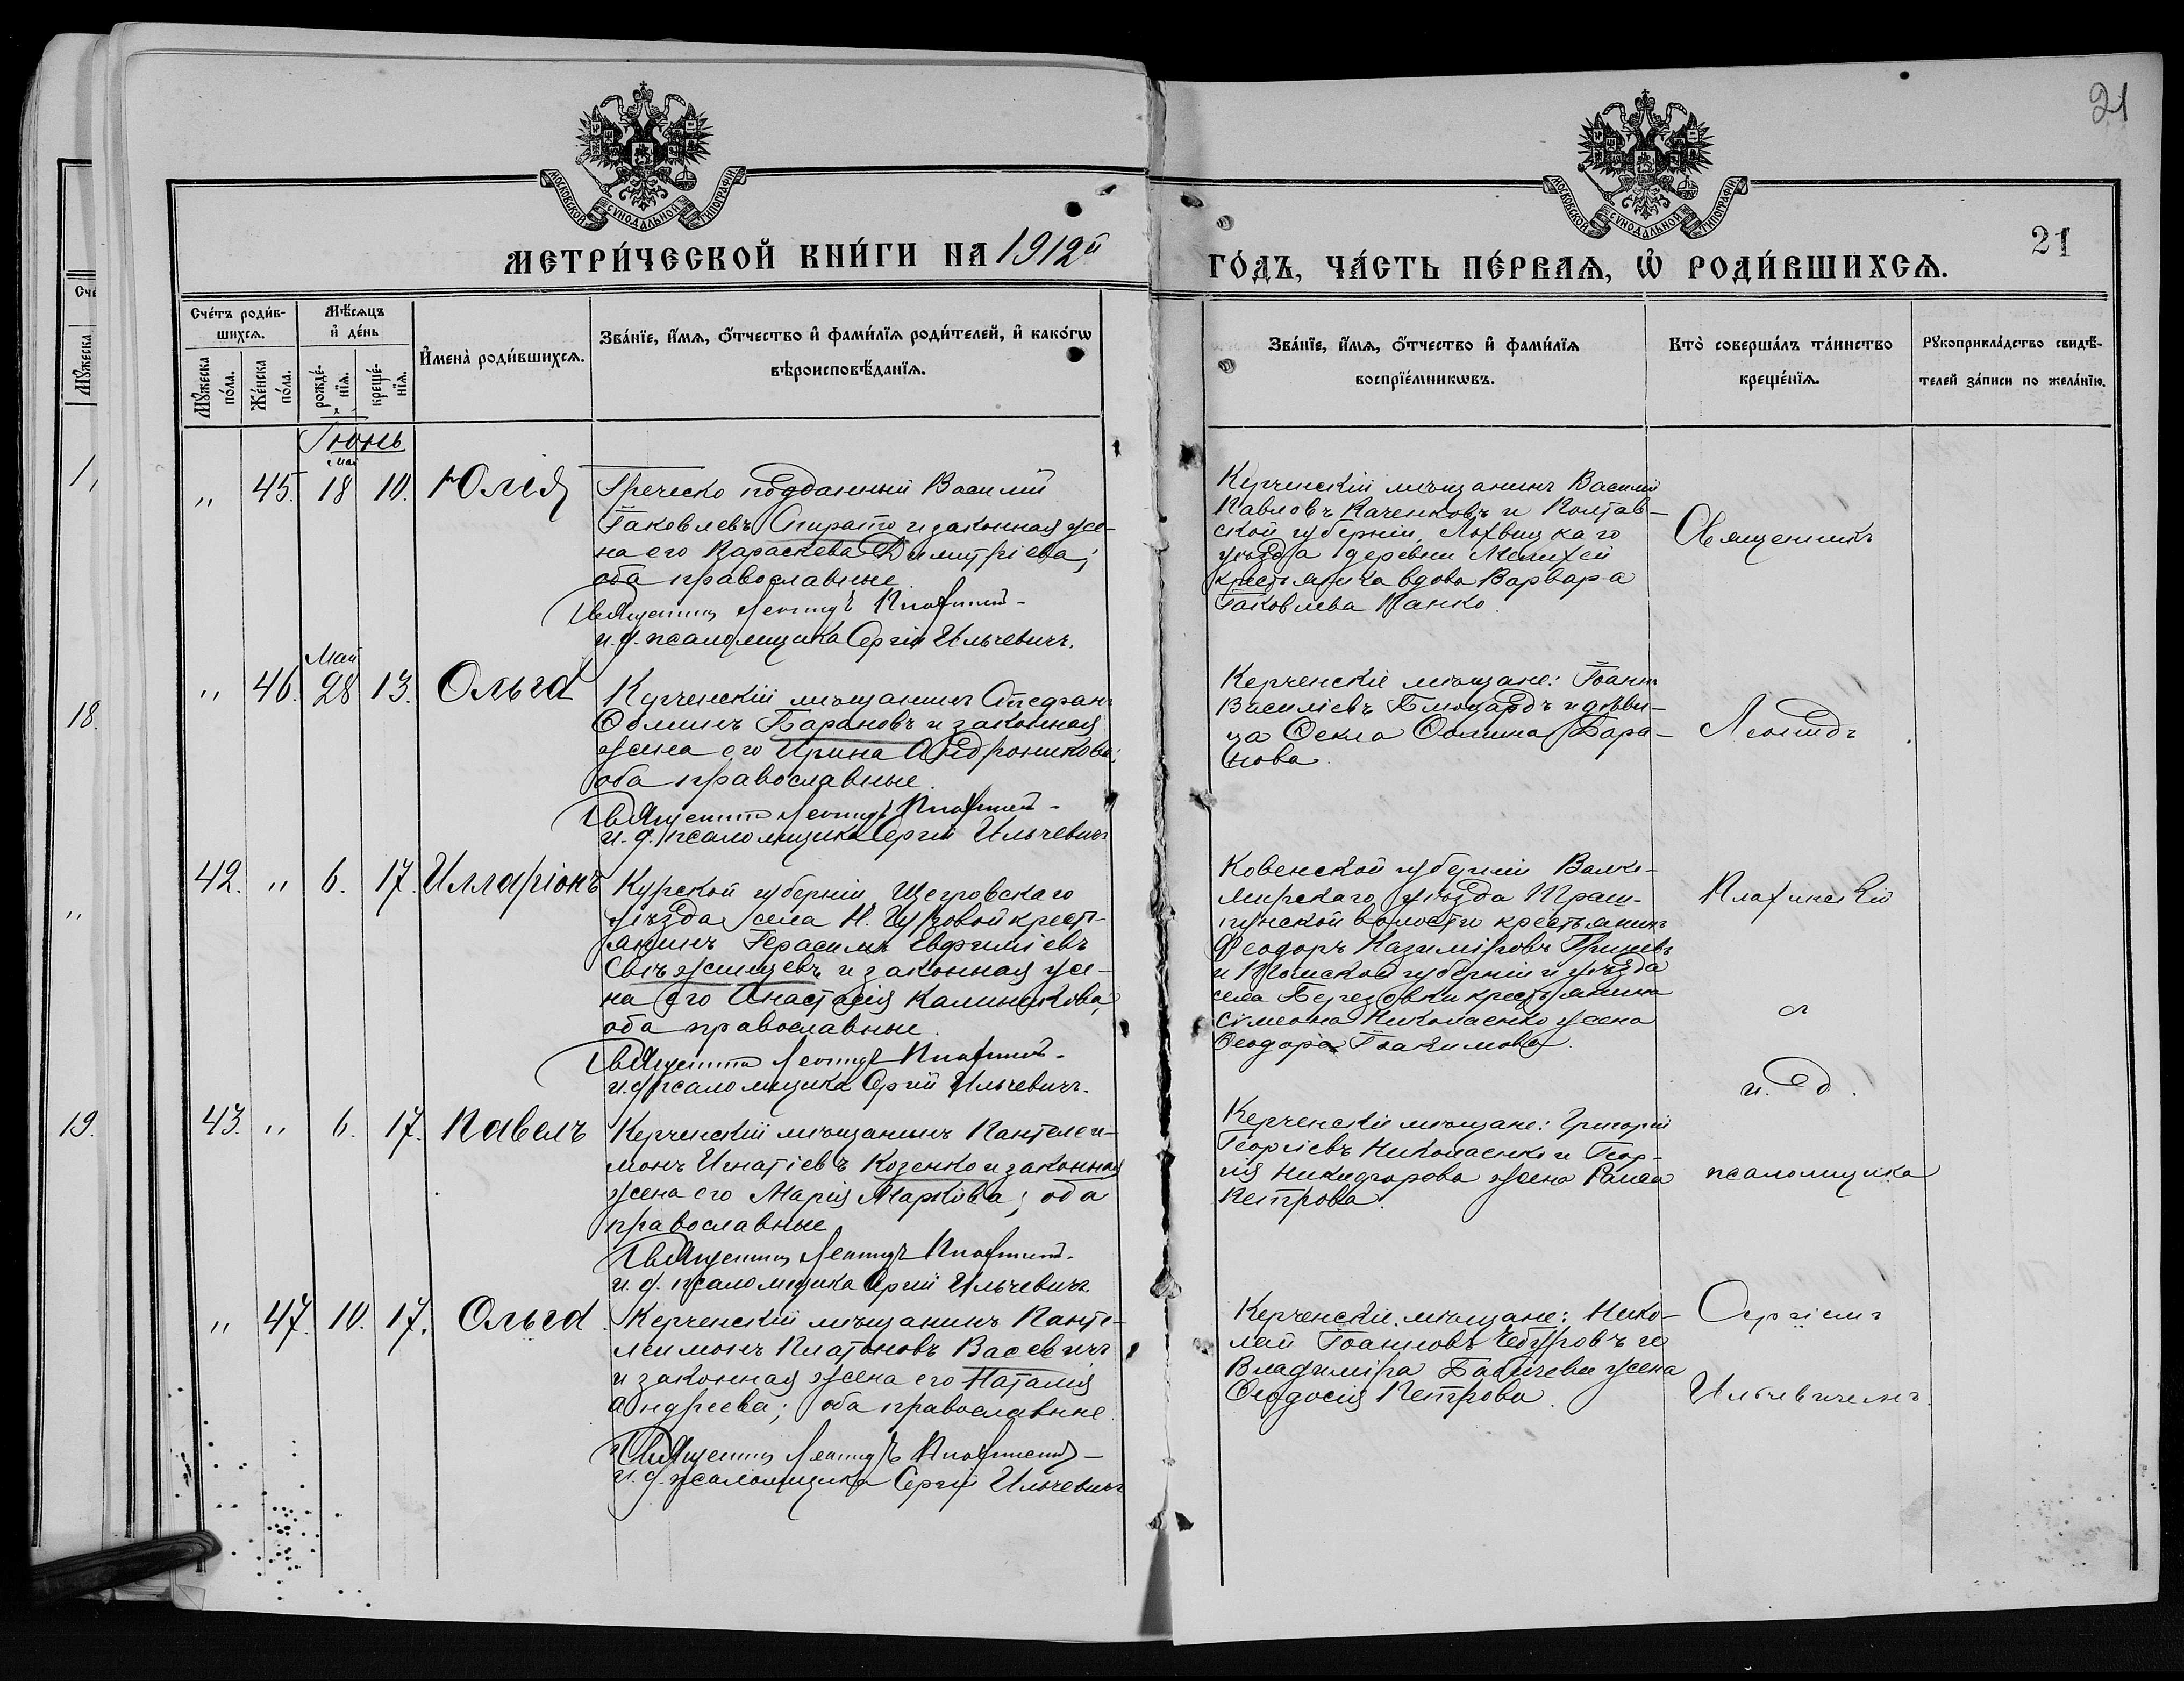 21
МОСКОВСКОЙ СУНОДАЛЬНОЙ ТИПОГРАФІИ
МЕТРИ́ЧЕСКОЙ КНИ́ГИ НА 1912й
МОСКОВСКОЙ СУНОДАЛЬНОЙ ТИПОГРАФІИ
ГО́ДЪ, ЧА́СТЬ ПЕ́РВАѦ, Ѡ҆ РОДИ́ВШИХСѦ.
21
Сче́тъ роди́в-
шихсѧ.
Мꙋ́жеска по́ла.
Же́нска по́ла.
Мѣ́сѧцъ
и҆ де́нь
рожде́-
нїѧ.
креще́-
нїѧ.
И҆мена̀ роди́вшихсѧ.
Зва́нїе, и҆́мѧ, ѻ҆́тчество и҆ фами́лїѧ роди́телей, и҆ како́гѡ
вѣроисповѣ́данїѧ.
Зва́нїе, и҆́мѧ, ѻ҆́тчество и҆ фами́лїѧ
воспрїе́мникѡвъ.
Кто̀ соверша́лъ та́инство
креще́нїѧ.
Рꙋкоприкла́дство свидѣ́-
телей за́писи по жела́нїю.
Іюнь
„ 45. май 18 10. Юлія
Греческо подданный Василій
Іаковлевъ Спирато и законная же-
на его Параскева Димитріева;
оба православные
Священникъ Леонидъ
и. д. псаломщика Сергій Ильчевичъ.
Керченскій мѣщанинъ Василій
Павловъ Каченковъ и Полтав-
ской губерніи, Лохвицкаго
уѣзда деревни
крестьянка вдова Варвара
Іаковлева Панко.
Священникъ
„ 46. Май 28 13. Ольга
Керченскій мѣщанинъ Стефанъ
Ѳоминъ Барановъ и законная
жена его Ирина Андроникова;
оба православные.
Священникъ Леонидъ
и. д. псаломщика Сергій Ильчевичъ
Керченскіе мѣщане: Іоаннъ
Василіевъ и дѣви-
ца Ѳекла Ѳомина Бара-
нова.
Леонидъ
42. „ 6. 17. Илларіонъ
Курской губерніи Щегровскаго
уѣзда села Н. кресть-
янинъ Герасимъ Евфиміевъ
и законная же-
на его Анастасія Калиникова;
оба православные.
Священникъ Леонидъ
и. д. псаломщика Сергій Ильчевичъ.
Ковенской губерніи Вилко-
мирскаго уѣзда
волости крестьянинъ
Ѳеодоръ Казиміровъ
и губерніи и уѣзда
села Березовки крестьянина
Симеона Николаенко жена
Ѳеодора Іоакимова.
с
и. д.
43. „ 6. 17. Павелъ
Керченскій мѣщанинъ Пантелеи-
монъ Игнатіевъ Козенко и законная
жена его Марія Маркова; оба
православные
Священникъ Леонидъ
и. д. псаломщика Сергій Ильчевичъ.
Керченскіе мѣщане: Григорій
Георгіевъ Николаенко и Геор-
гія Никифорова жена Раиса
Петрова.
псаломщика
„ 47. 10. 17. Ольга.
Керченскій мѣщанинъ Панте-
леимонъ Платоновъ Васевичъ
и законная жена его Наталія
Андреева; оба православные.
Священникъ Леонидъ
и. д. псаломщика Сергій Ильчевичъ
Керченскіе мѣщане: Нико-
лай Іоанновъ и
Владиміра Бабичева жена
Ѳеодосія Петрова.
Сергіемъ
Ильчевичемъ.
Мꙋ́жеска
18.
„
19.